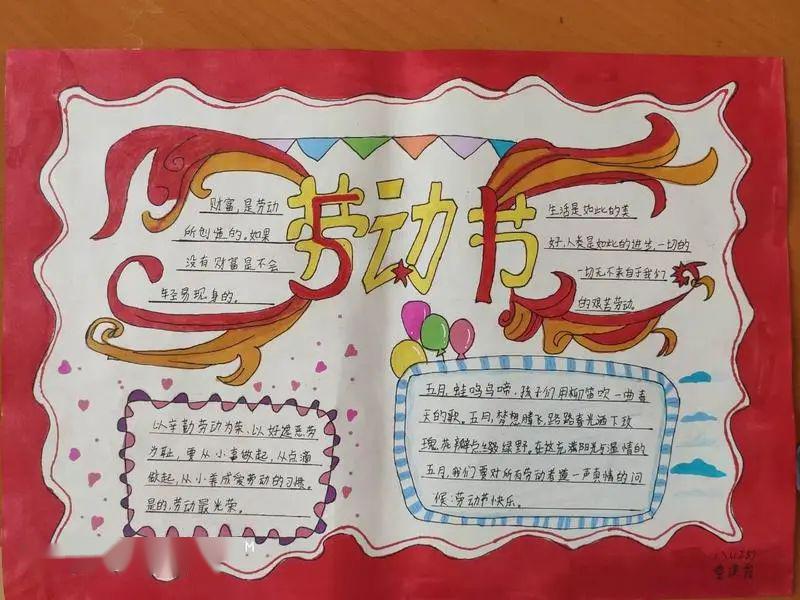 劳动节
5 1
财富,是劳动
所创造的。如果
没有财富是不会
轻易现身的。
生活是如此的美
好,人类是如此的进步,一切的
一切无不来自于我们
的艰苦劳动。
以辛勤劳动为荣、以好逸恶劳
为耻,要从小事做起,从点滴
做起,从小养成爱劳动的习惯。
是的,劳动最光荣。
五月,蛙鸣鸟啼,孩子们用柳笛吹一曲春
天的歌。五月,梦想腾飞,路路春光洒下玫
瑰花瓣点缀绿野。在这充满阳光与温情的
五月,我们要对所有劳动者道一声真情的问
候:劳动节快乐。
M